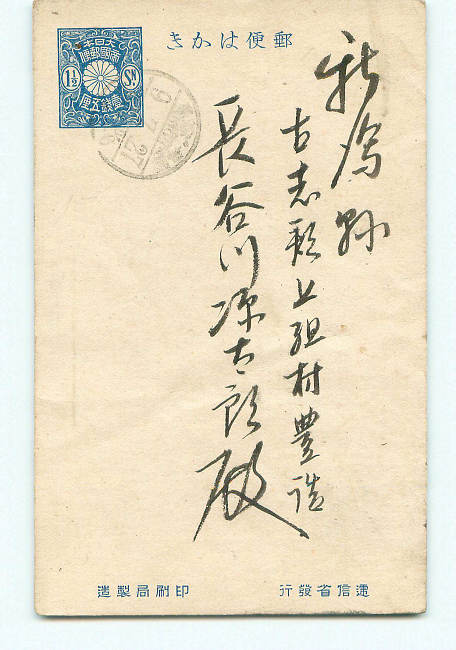 郵便はかき
大日本
帝國郵便
1½ Sn.
壹銭五厘
新潟縣
古志郡上組村豊詰
長谷川源太郎殿
遞信省發行
印刷局製造